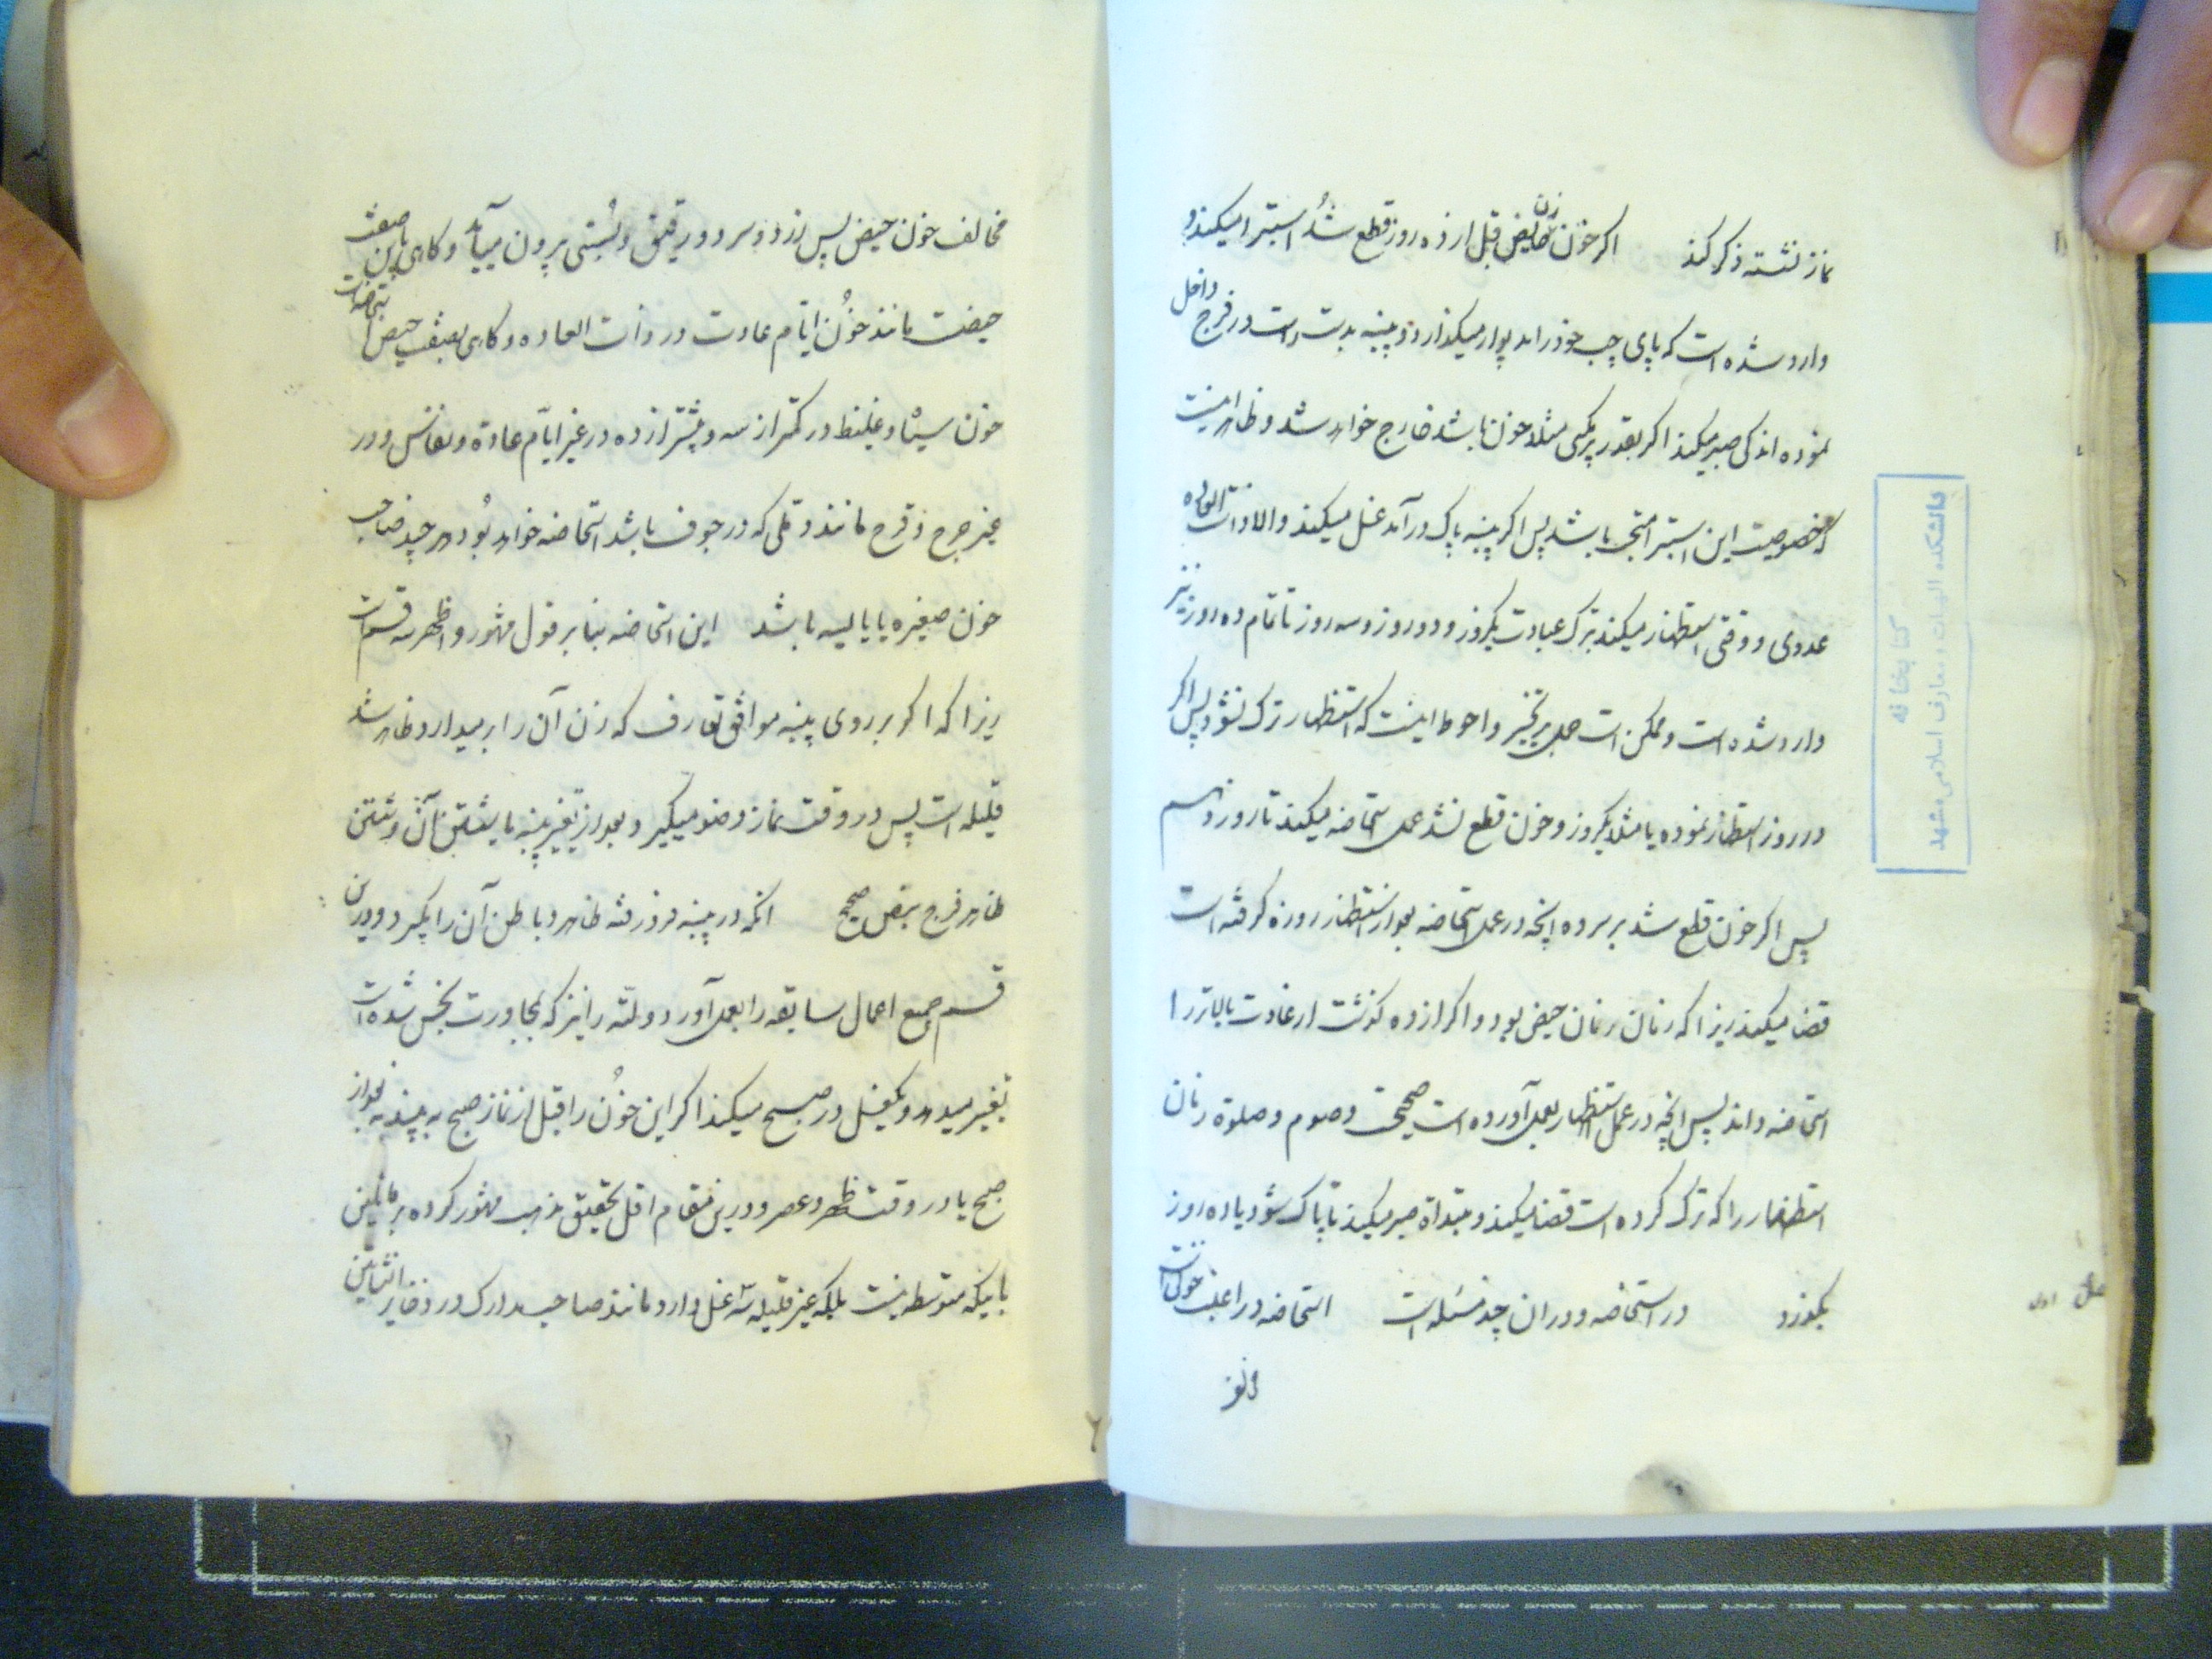 نماز نشسته ذکر کند اکر خون زن حایض قبل از ده روز قطع شد استبرا میکند و
وارد شده است که پای چپ خود را بدیوار میکذارد و پنبه بدست راست در فرج داخل
نموده اندکی صبر میکند اکر بقدر پر مکسی مثلا خون باشد خارج خواهد شد و ظاهر اینست
که خصوصیت این استبرا مستحب باشد پس اکر پنبه پاک درآمد غسل میکند والا ذات العاده
عددی و وقتی استظهار میکند بترک عبادت یکروز و دو روز و سه روز تا تمام ده روز نیز
وارد شده است و ممکن است حمل بر تخییر و احوط اینست که استظهار ترک نشود پس اکر
در روز استظهار نموده یا مثلا یکروز و خون قطع نشد عمل استحاضه میکند تا روز دهم
پس اکر خون قطع شد بر سر ده آنچه در عمل استحاضه بعد از استظهار روزه کرفته است
قضا میکند زیرا که زمان زمان حیض بود و اکر از ده کذشت از عادت بالاتر را
استحاضه داند پس آنچه در عمل استظهار بعمل آورده است صحیح و صوم و صلوة زمان
استظهار را که ترک کرده است قضا میکند و مبتداة صبر میکند تا پاک شود یا ده روز
بکذرد در استحاضه و در ان چند مسئله است استحاضه در اغلب خونی است
مخالف
مخالف خون حیض پس زرد و سرد و رقیق و بسستی بیرون میآید و کاهی باین صفت
حیضست مانند خون ایام عادت در ذات العاده و کاهی بصفت حیض استحاضه است
خون سیاه و غلیظ در کمتر از سه و بیشتر از ده در غیر ایام عادة و نفاس و در
غیر جرح و قرح مانند دملی که در جوف باشد استحاضه خواهد بود هر چند صاحب
خون صغیره یا یائسه باشد این استحاضه بنابر قول مشهور و اظهر سه قسم است
زیرا که اکر بر روی پنبه موافق تعارف که زن آن را برمیدارد ظاهر شد
قلیله است پس در وقت نماز وضو میکیرد و بعد از تغییر پنبه یا شستن آن و شستن
ظاهر فرج بنص صحیح آنکه در پنبه فرو رفته ظاهر و باطن آن را بکیرد و درین
قسم جمیع اعمال سابقه را بعمل آورد و لته را نیز که بمجاورت نجس شده است
تغییر میدهد و یکغسل در صبح میکند اکر این خون را قبل از نماز صبح به بیند نه بعد از
صبح یا در وقت ظهر و عصر و درین مقام اقل تحقیق مذهب مشهور کرده بر قائلین
باینکه متوسطه نیست بلکه غیر قلیله سه غسل دارد مانند صاحب مدارک در ذخایر
دانشکده الهیات و معارف اسلامی مشهد
کتابخانه